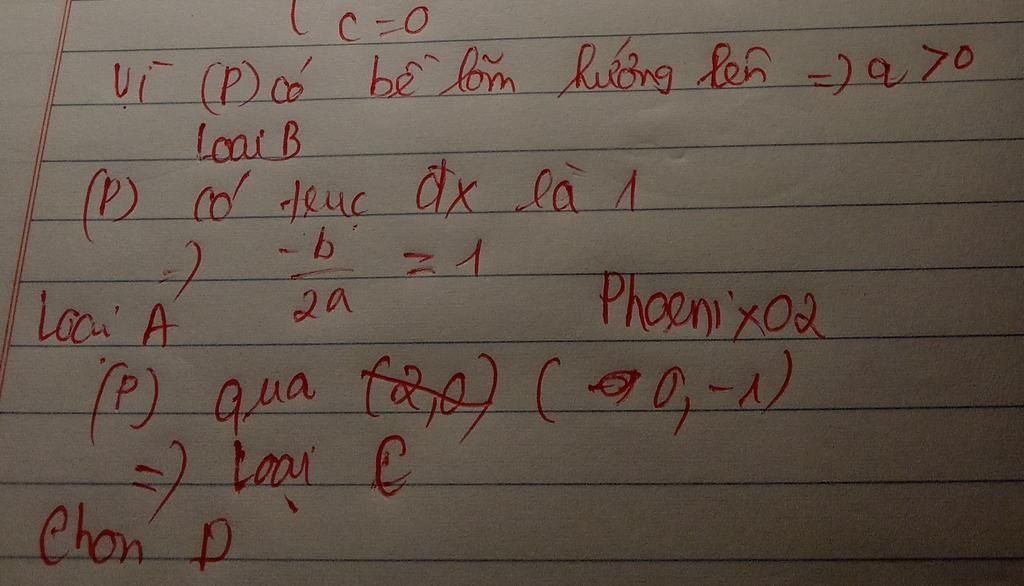 ( c=0
Vì (P) có bề lõm hướng lên => a > 0
Loại B
(P) có trục đx là 1
=> -b/2a = 1
Loại A
Phoenix02
(P) qua (2,0) (0,-1)
=> Loại C
Chọn D